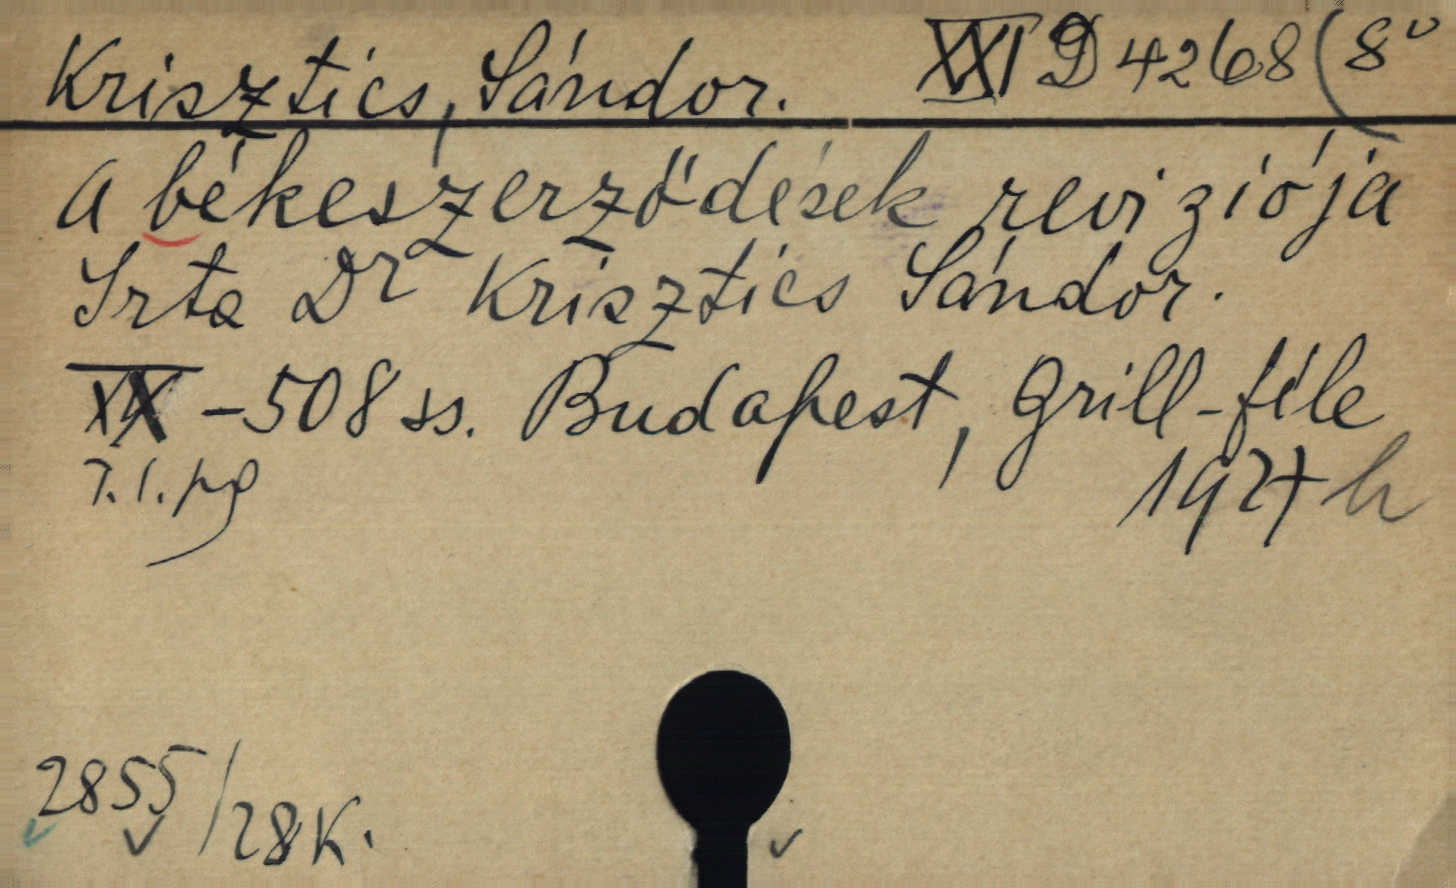 Krisztics, Sándor. XXI D 4268 (8°
A békeszerződések reviziója
Irta Dr Krisztics Sándor.
XX - 508 ss. Budapest, Grill-féle
1927 h
2855/28 K.